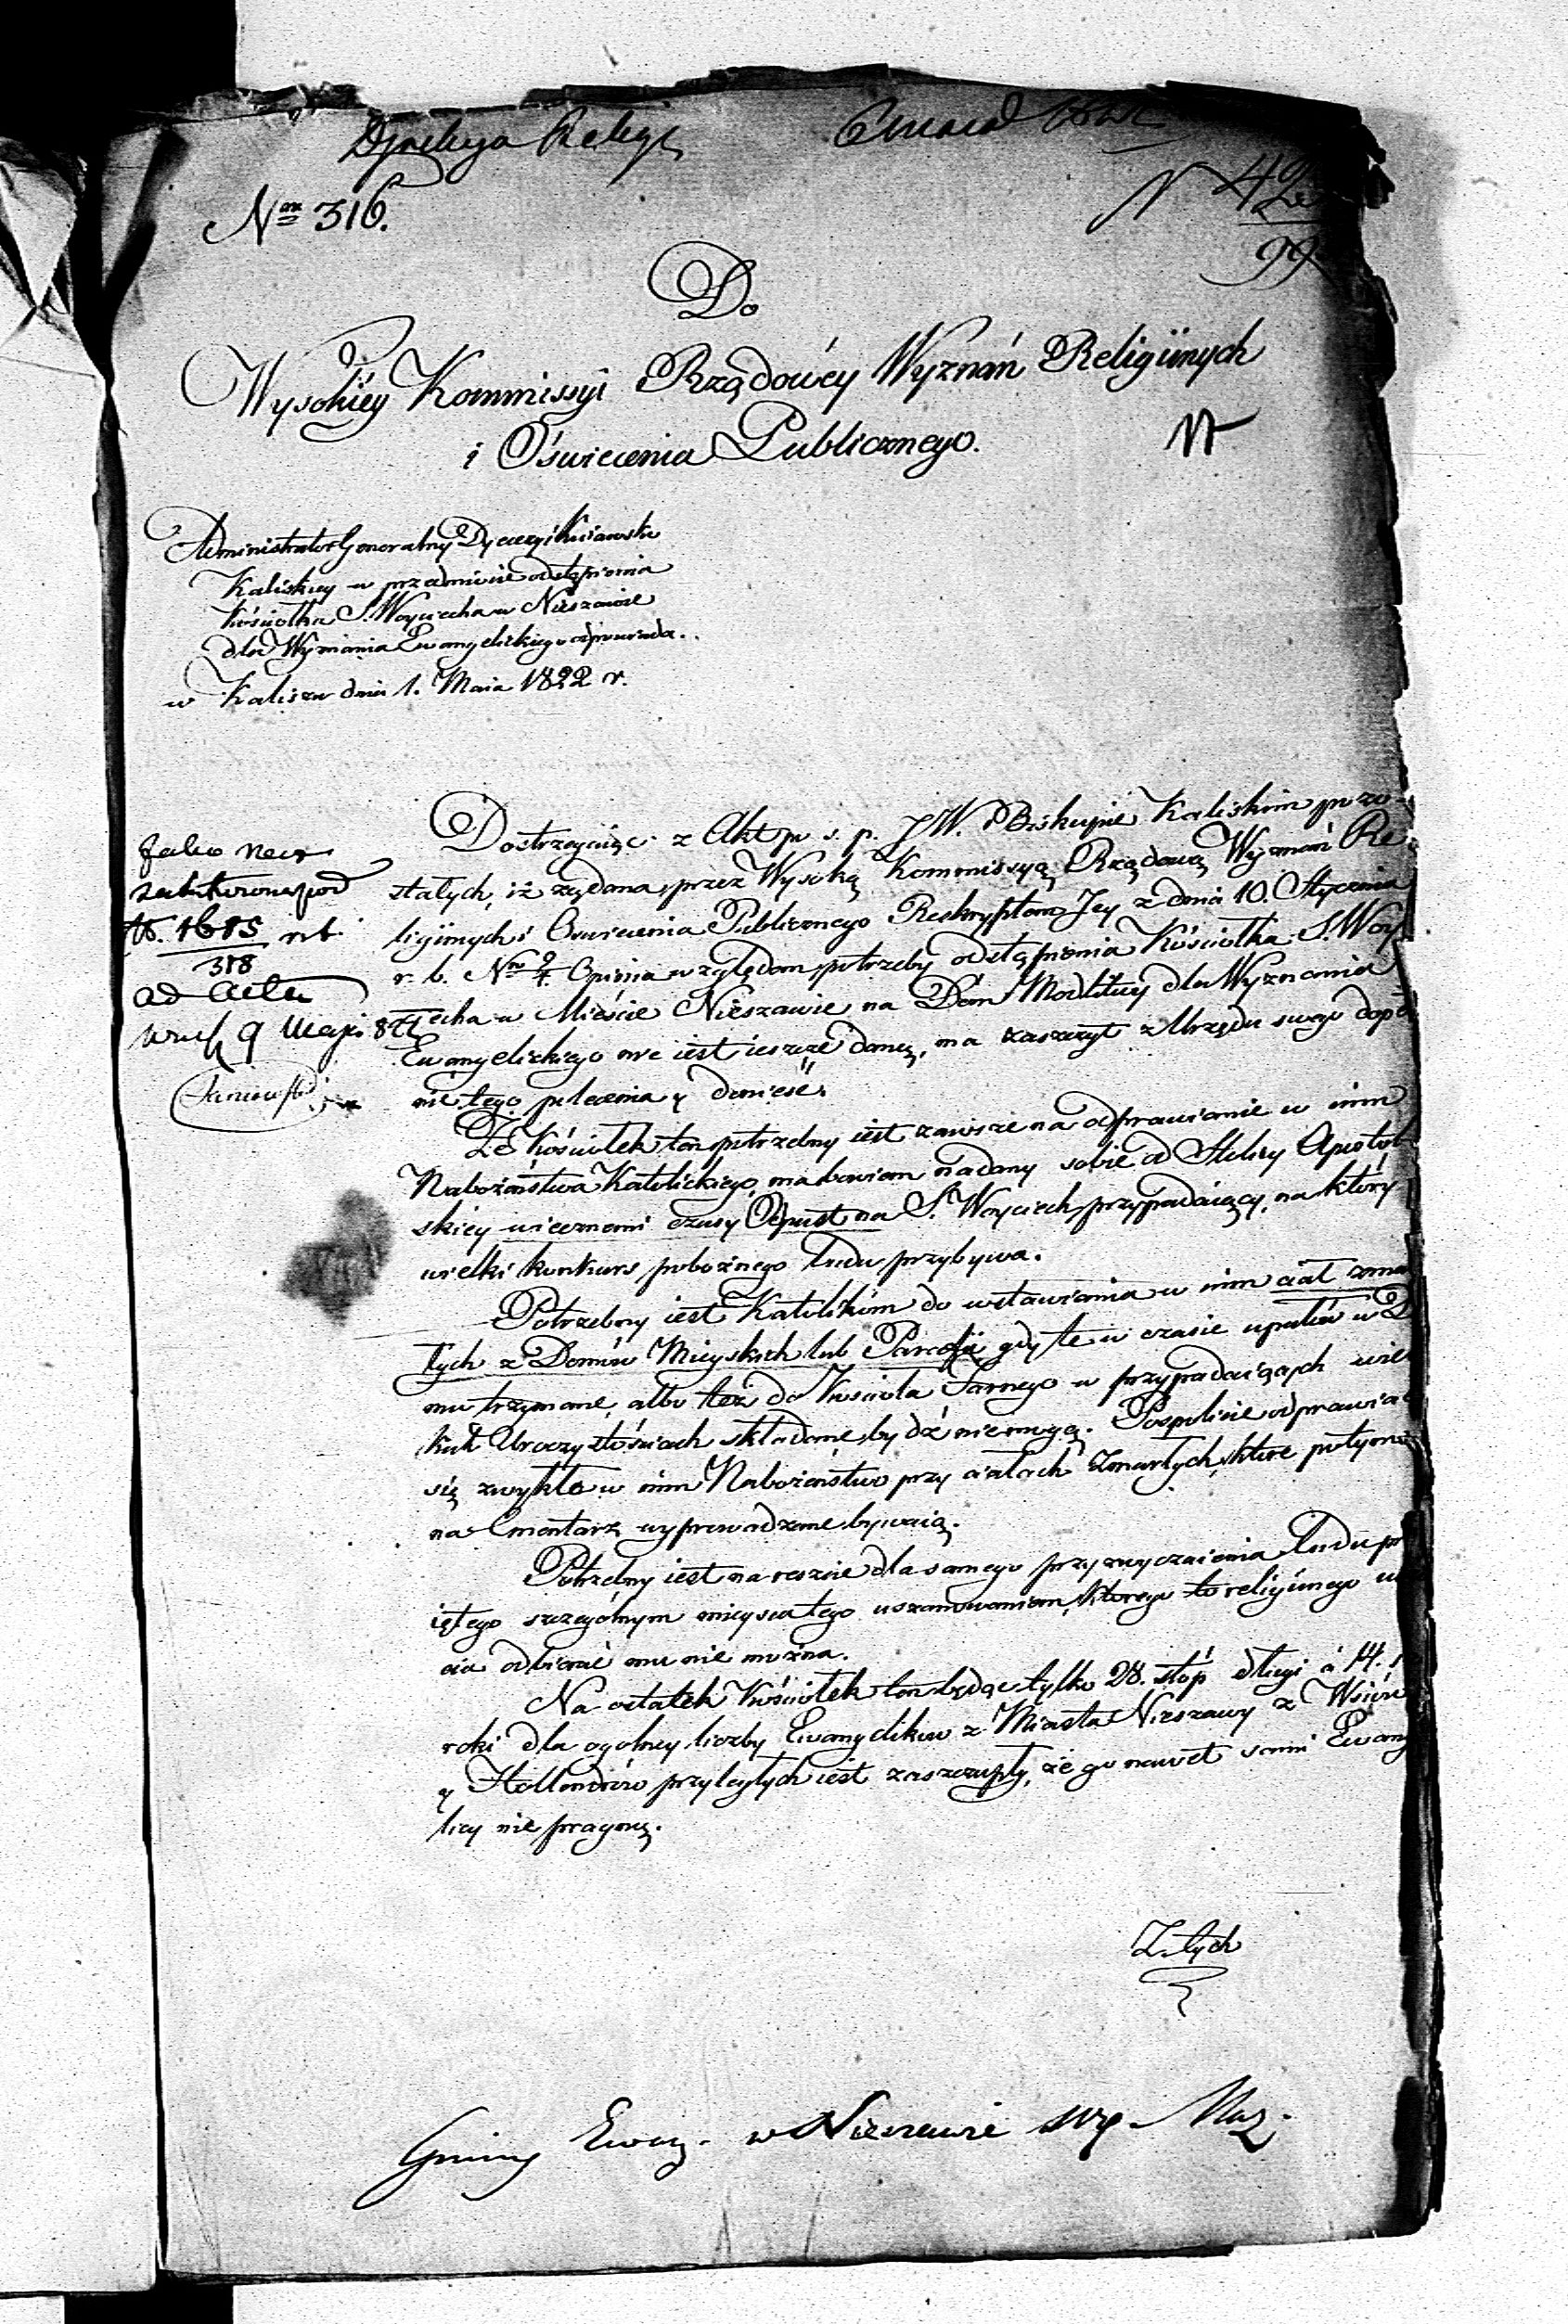 Dyrekcya Religi
Nro 316.
N 49
99
Do
Wysokiéy Kommissyi Rządowéy Wyznań Religiinych
i Oświecenia Publicznego.
Administrator Generalny Dyecezyi Kuiawsko
Kaliskiey w przedmiocie odstąpienia
Kościołka S. Woyciecha w Nieszawie
dla Wyznania Ewangelickiego odpowiada.
w Kaliszu dnia 1. Maia 1822 r.
Dostrzegaiąc z Akt po s. p. JW. Biskupie Kaliskim pozo-
stałych, iż żądana przez Wysoką Kommissyą Rządową Wyznań Re-
ligiinych i Oswiecenia Publicznego Reskryptem Jey z dnia 10. Stycznia
r. b. Nro Opinia względem potrzeby odstąpienia Kościołka S. Woy
ciecha w Mieście Nieszawie na Dom Modlitwy dla Wyznania
Ewangelickiego nie iest ieszcze daną, ma zaszczyt z Urzędu swego dopeł
nić tego polecenia y donieść.
Że Kościołek ten potrzebny iest zawsze na odprawianie w nim
Nabożeństwa Katolickiego, ma bowiem nadany sobie od Stolicy Apostol-
skiey wiecznemi czasy Odpust na S. Woyciech przypadaiący, na który
wielki konkurs pobożnego ludu przybywa.
Potrzebny iest Katolikom do wstawiania w nim ciał zmar
łych z Domów Mieyskich lub Parafii gdy te w czasie upałów w D
mu trzymane, albo też do Kościoła Farnego w przypadaiących wiel
kich Uroczystościach składane bydź niemogą. Pospolicie odprawiać
się zwykło w nim Nabożeństwo przy ciałach Zmarłych, które potym
na Cmentarz wyprowadzone bywaią.
Potrzebny iest na reszcie dla samego przyzwyczaienia Ludu prze
iętego szczególnym mieysca tego uszanowaniem, którego to religiinego u
cia odbierać mu nie można.
Na ostatek Kościołek ten będąc tylko 28. stóp długi á 14. s
roki dla ogólney liczby Ewangelików z Miasta Nieszawy z Wsiów
y Hollendrów przyległych iest zaszczupły, że go nawet sami Ewang
licy nie pragną.
Jako new
zalatwione pod
No. 1615 r b.
318
ad acta
9 Maja 822
Z tych
Gminy Ewang. w Nieszawie Wp. Maz.